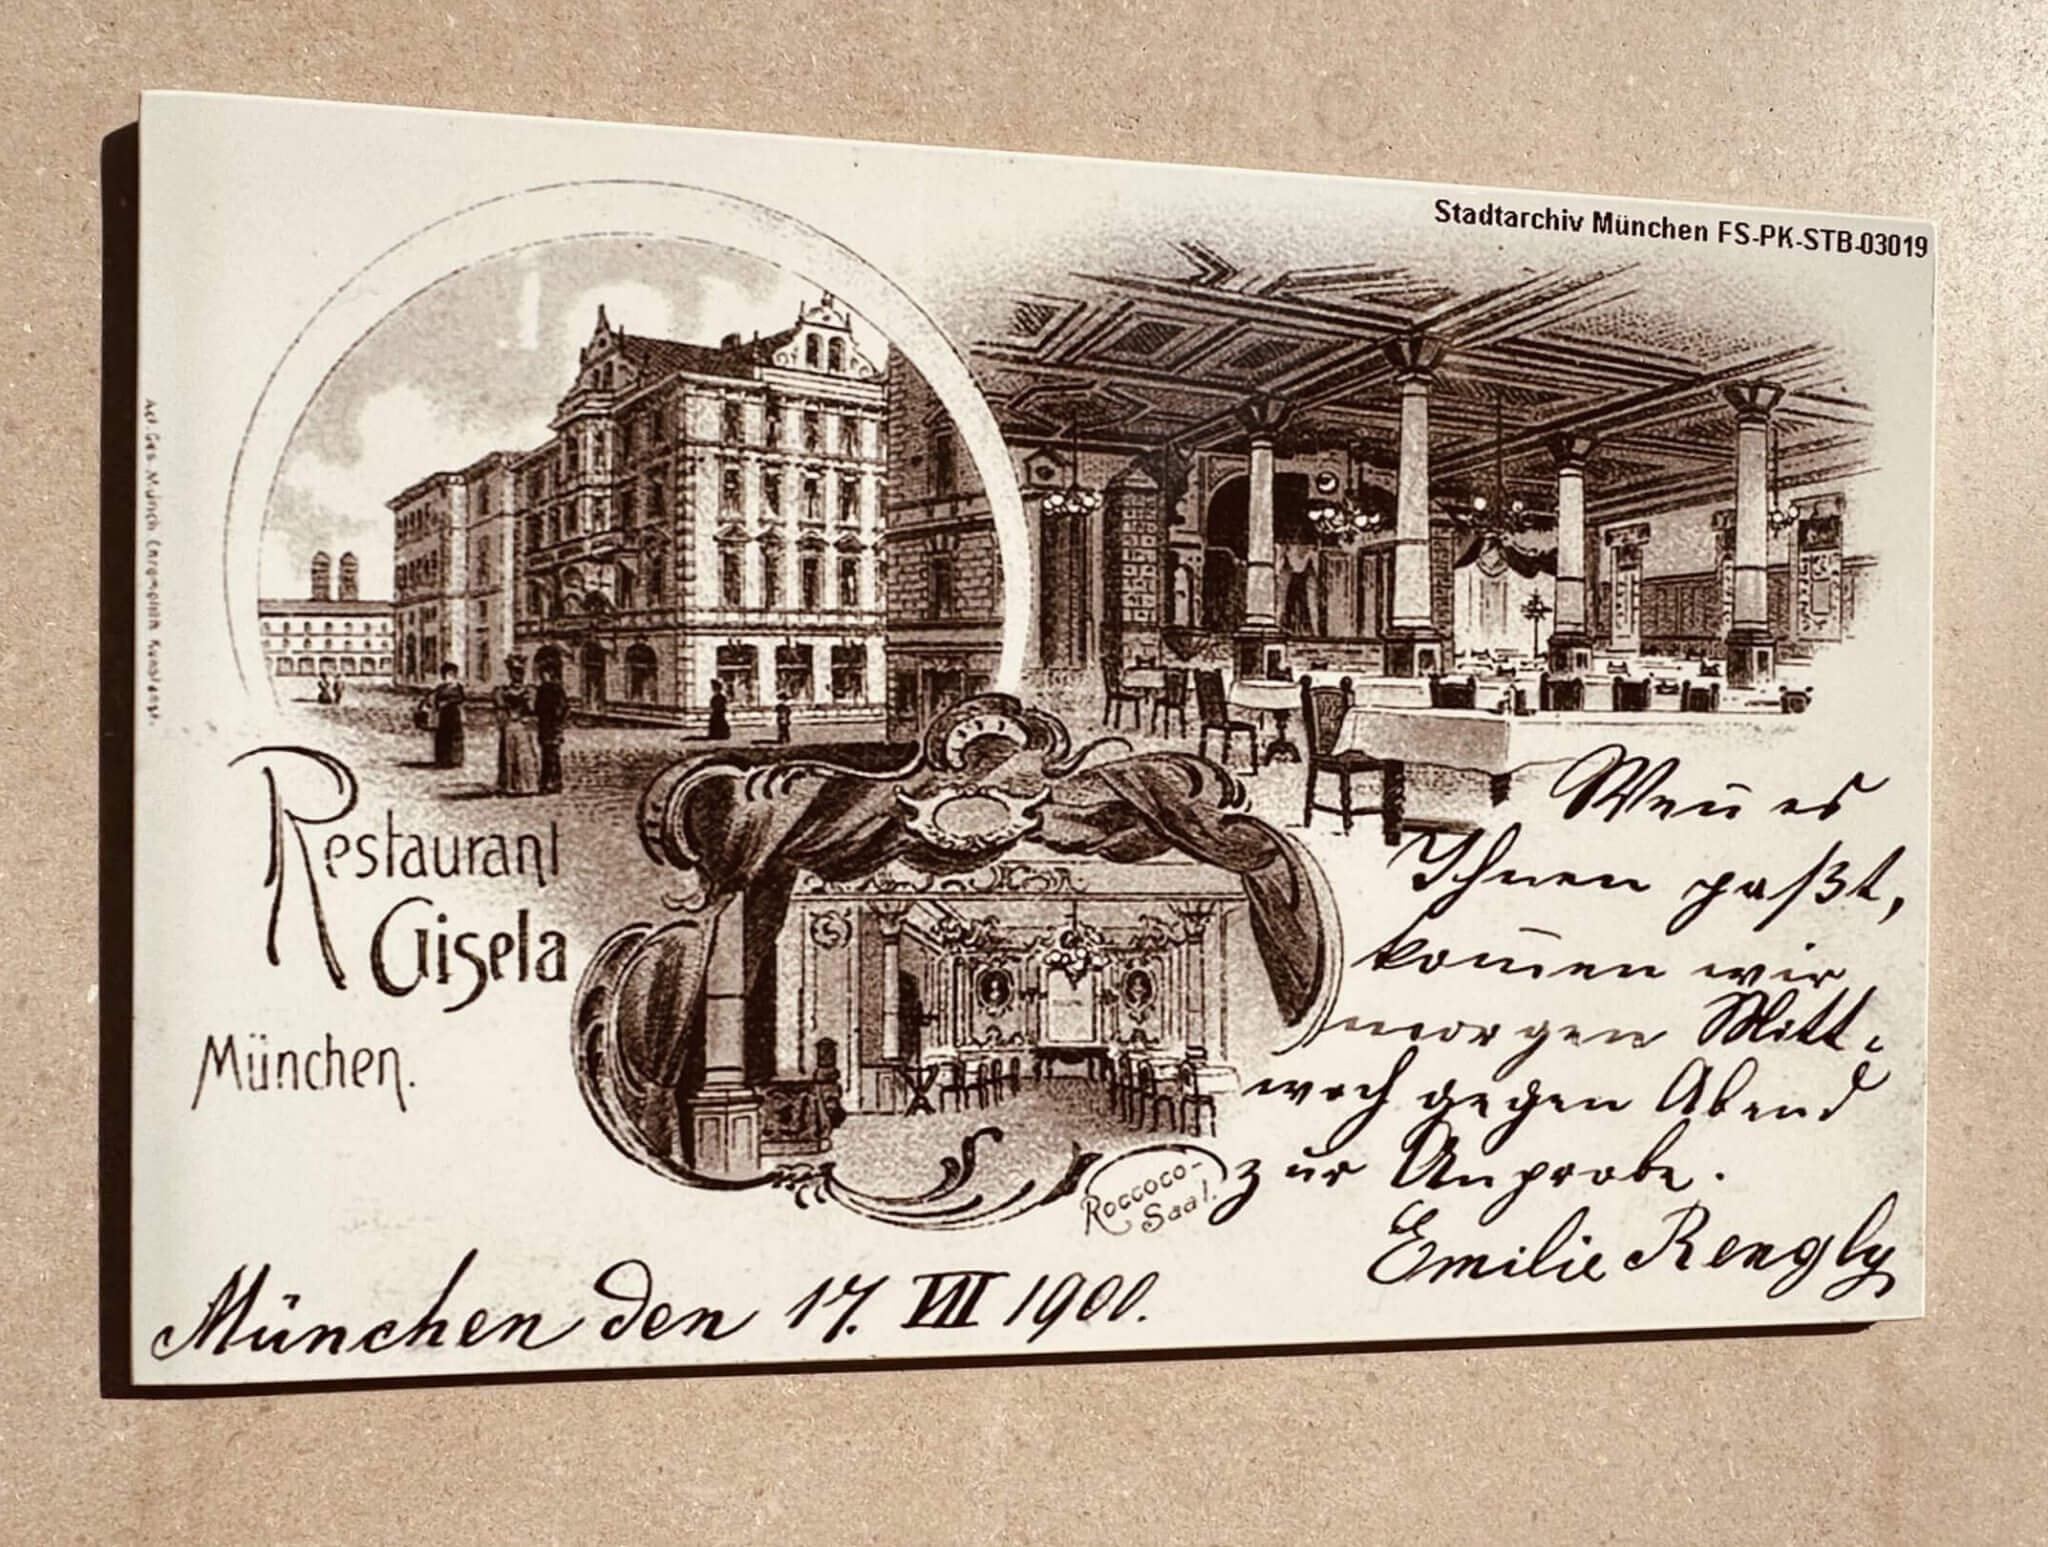 Stadtarchiv München FS-PK-STB-03019
Restaurant
Gisela
München.
Roccoco-
Saal.
Weñ es
Ihnen paßt,
kom̄en wir
morgen Mitt-
woch gegen Abend
zur Anprobe.
Emilie Rengly
München den 17. VII 1900.
Act. Ges. Münch.